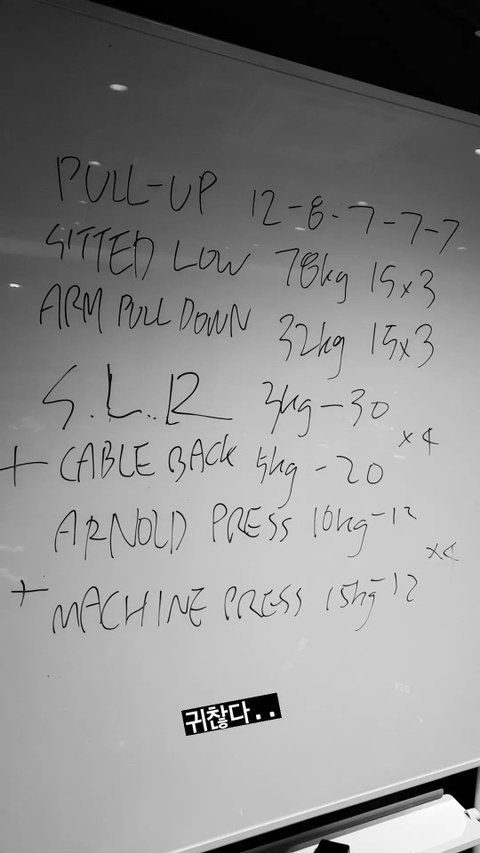 PULL-UP 12-8-7-7-7
SITTED LOW 78kg 15x3
ARM PULL DOWN 32kg 15x3
S.L.R 3kg-30
+ CABLE BACK 5kg-20 x4
ARNOLD PRESS 10kg-12
+ MACHINE PRESS 15kg-12 x4
귀찮다..